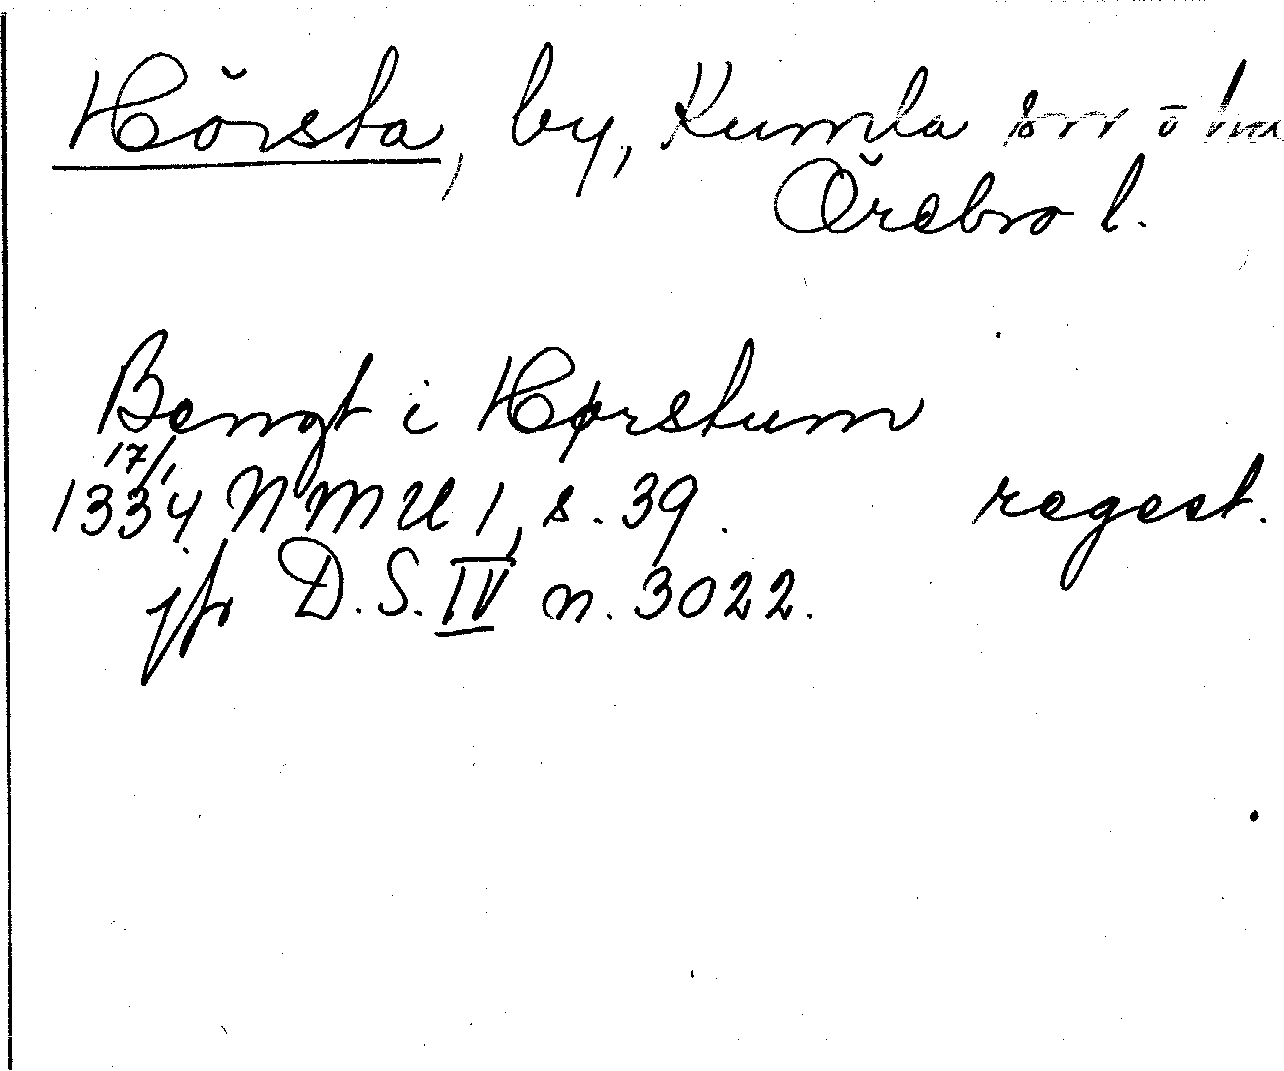 Hörsta, by, Kumla
Örebro l.
Bengt i Hørstum
17/1
1334 NMU 1, s. 39. regest.
jfr D.S. IV n. 3022.